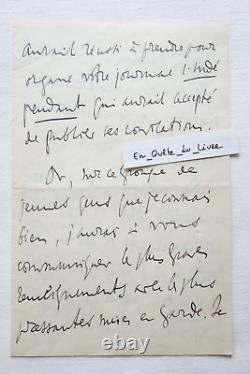 aurait réussi à prendre pour
organe votre journal l'Indé
pendant qui aurait accepté
de publier ses convocations.
En_Quête_du_Livre
Or, sur ce groupe de
jeunes gens que je connais
bien, j'aurais à vous
communiquer les plus graves
renseignements avec les plus
pressantes mises en garde. Je
© 123th.com